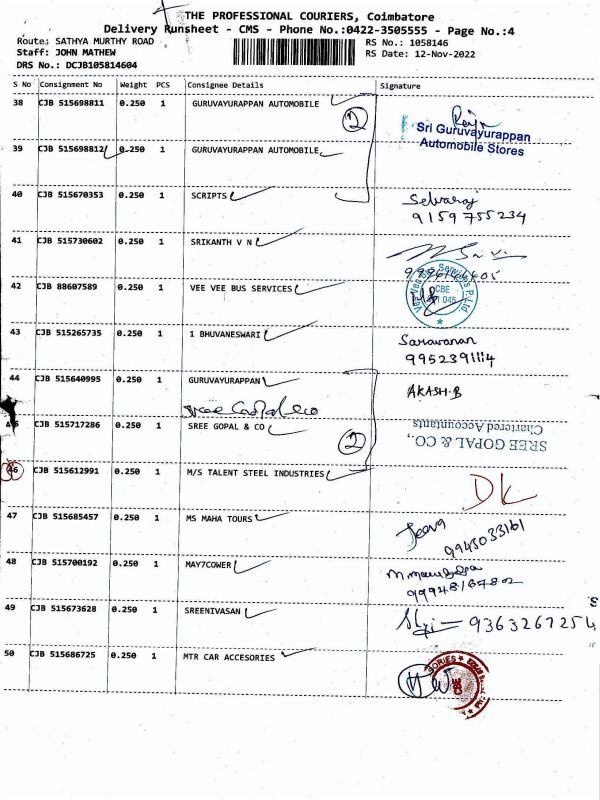 THE PROFESSIONAL COURIERS, Coimbatore
Delivery Runsheet - CMS - Phone No.:0422-3505555 - Page No.:4
Route: SATHYA MURTHY ROAD RS No.: 1058146
Staff: JOHN MATHEW RS Date: 12-Nov-2022
DRS No.: DCJB105814604
S No Consignment No Weight PCS Consignee Details Signature
38 CJB 515698811 0.250 1 GURUVAYURAPPAN AUTOMOBILE
2
Sri Guruvayurappan
Automobile Stores
39 CJB 515698812 0.250 1 GURUVAYURAPPAN AUTOMOBILE
40 CJB 515670353 0.250 1 SCRIPTS Selvaraj
9159755234
41 CJB 515730602 0.250 1 SRIKANTH V N
42 CJB 88607589 0.250 1 VEE VEE BUS SERVICES
CBE
43 CJB 515265735 0.250 1 1 BHUVANESWARI Saravanan
9952391114
44 CJB 515640995 0.250 1 GURUVAYURAPPAN AKASH.B
CJB 515717286 0.250 1 SREE GOPAL & CO
SREE GOPAL & CO.,
Chartered Accountants
2
46 CJB 515612991 0.250 1 M/S TALENT STEEL INDUSTRIES DK
47 CJB 515685457 0.250 1 MS MAHA TOURS
9943033161
48 CJB 515700192 0.250 1 MAY7COWER
9994816782
49 CJB 515673628 0.250 1 SREENIVASAN 9363267254
50 CJB 515686725 0.250 1 MTR CAR ACCESORIES